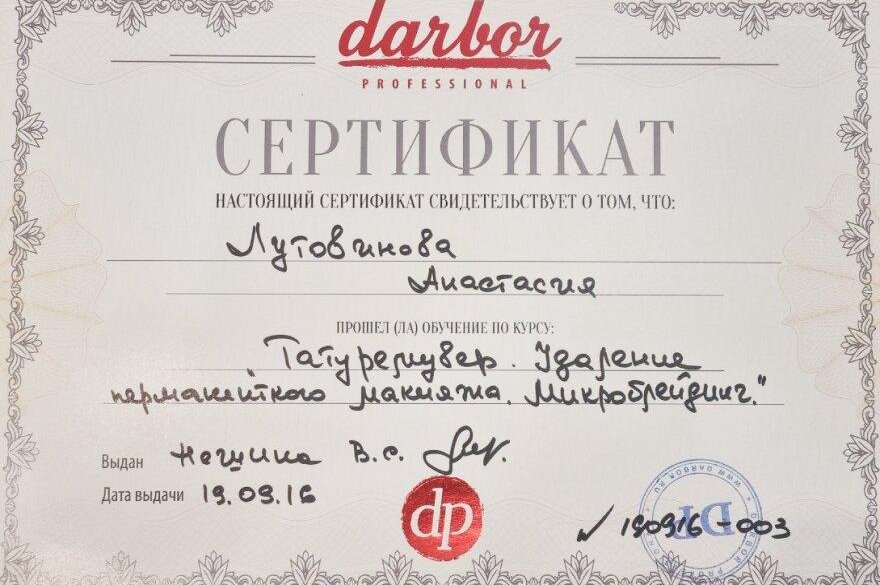 darbor
PROFESSIONAL
СЕРТИФИКАТ
НАСТОЯЩИЙ СЕРТИФИКАТ СВИДЕТЕЛЬСТВУЕТ О ТОМ, ЧТО:
Лутовинова
Анастасия
ПРОШЕЛ (ЛА) ОБУЧЕНИЕ ПО КУРСУ:
"Татуремувер. Удаление
перманентного макияжа. Микроблейдинг."
Выдан В.С.
Дата выдачи 19.09.16
dp
190916-003
DP
WWW.DARBOR.RU